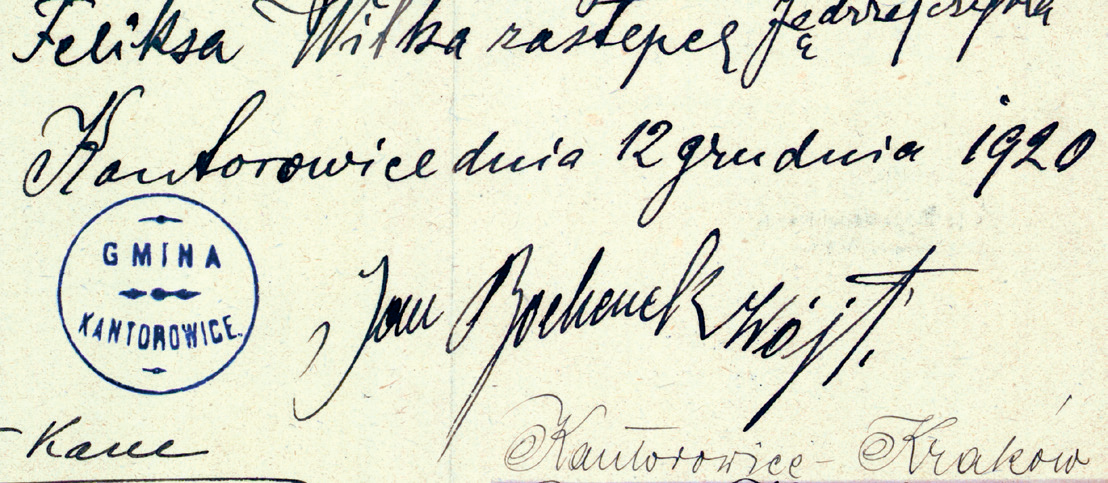 Feliksa Wilka zastępcę Jędrzejczyka
Kantorowice dnia 12 grudnia 1920
GMINA
KANTOROWICE.
Jan Bochenek Wójt.
Kantorowice - Kraków